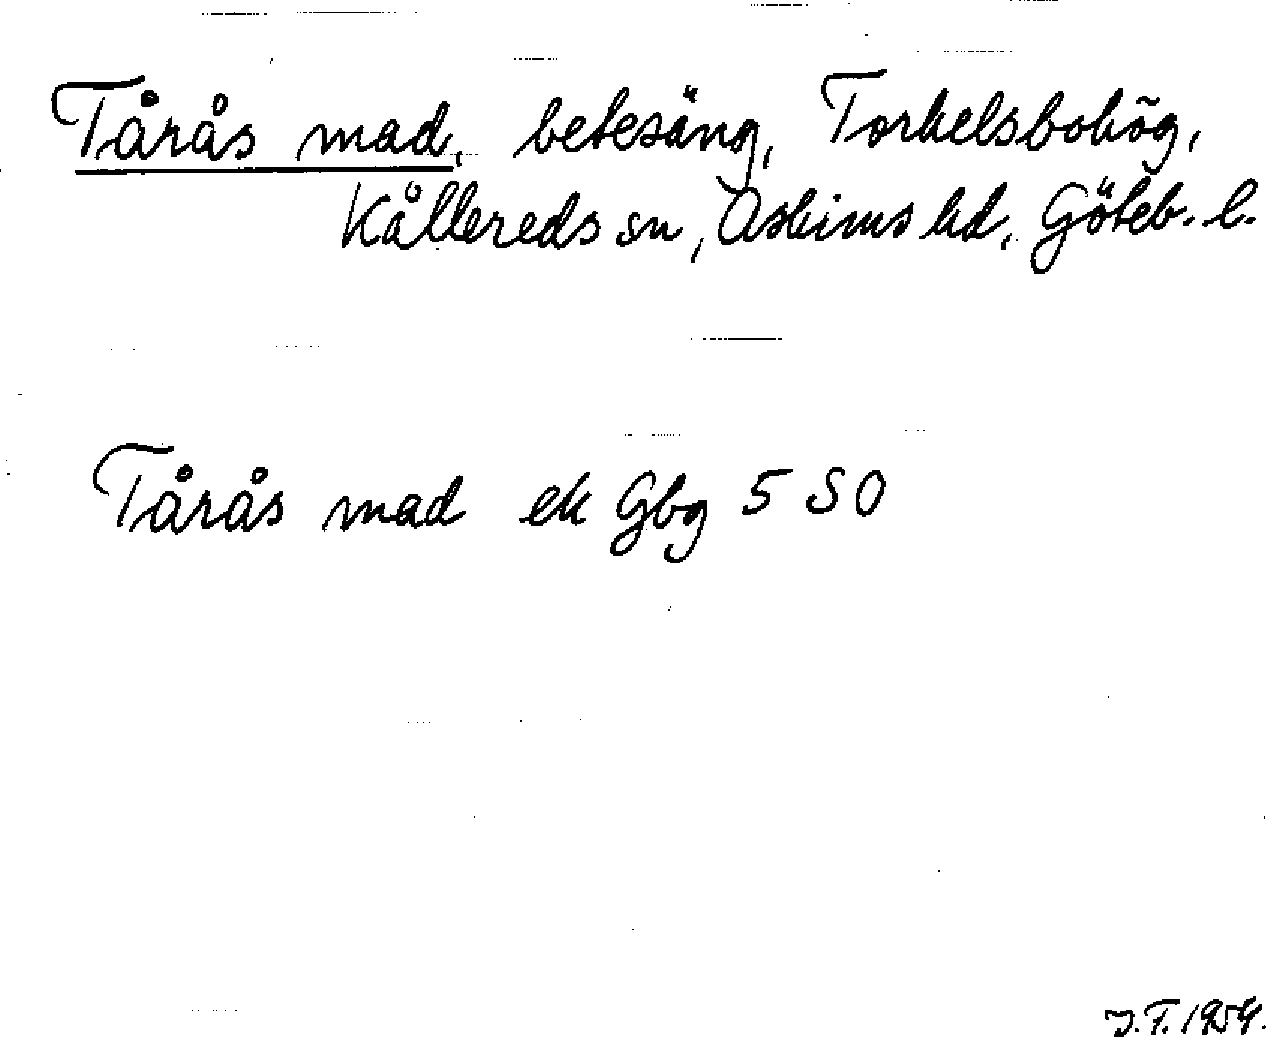 Tårås mad, betesäng, Torkelsbohög,
Kållereds sn, Askims hd, Göteb. l.
Tårås mad ek Gbg 5 SO
J.F. 1954.